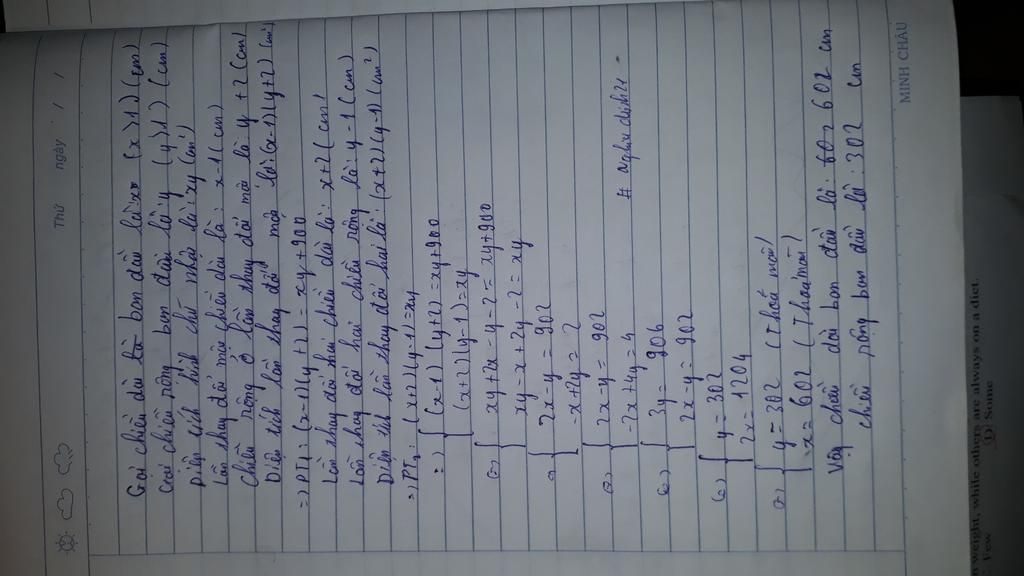 Thứ ngày / /
Gọi chiều dài là ban đầu là: x (x>1) (cm)
Gọi chiều rộng ban đầu là y (y>1) (cm)
Diện tích hình chữ nhật là: xy (cm²)
Lần thay đổi một chiều dài là: x-1 (cm)
Chiều rộng ở lần thay đổi một là: y+2 (cm)
Diện tích lần thay đổi một là: (x-1)(y+2) (cm²)
=) PT₁: (x-1)(y+2) = xy+900
Lần thay đổi hai chiều dài là: x+2 (cm)
Lần thay đổi hai chiều rộng là: y-1 (cm)
Diện tích lần thay đổi hai là: (x+2)(y-1) (cm²)
=) PT₂: (x+2)(y-1)=xy
=) { (x-1)(y+2)=xy+900
(x+2)(y-1)=xy
(=) { xy+2x-y-2=xy+900
xy-x+2y-2=xy
(=) { 2x-y=902
-x+2y=2
(=) { 2x-y=902
-2x+4y=4
(=) { 3y=906
2x-y=902
(=) { y=302
2x=1204
(=) { y=302 (Thoả mãn)
x=602 (Thoả mãn)
Vậy chiều dài ban đầu là: 602 cm
chiều rộng ban đầu là: 302 cm
MINH CHÂU
n weight, while others are always on a diet.
Few
D Some